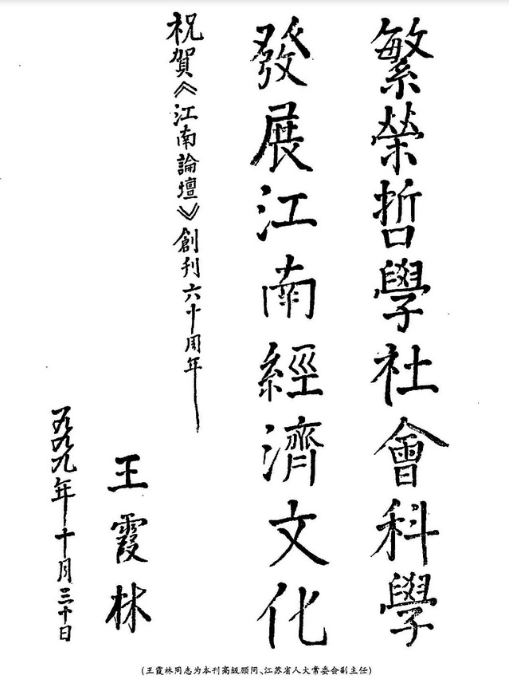 繁榮哲學社會科學
發展江南經濟文化
祝賀《江南論壇》創刊六十周年
王霞林
一九九九年十月三十日
(王霞林同志为本刊高级顾问、江苏省人大常委会副主任)